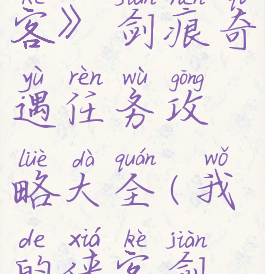 kè jiàn hén qí
客》剑痕奇
yù rèn wù gōng
遇任务攻
lüè dà quán wǒ
略大全(我
de xiá kè jiàn
的侠客剑